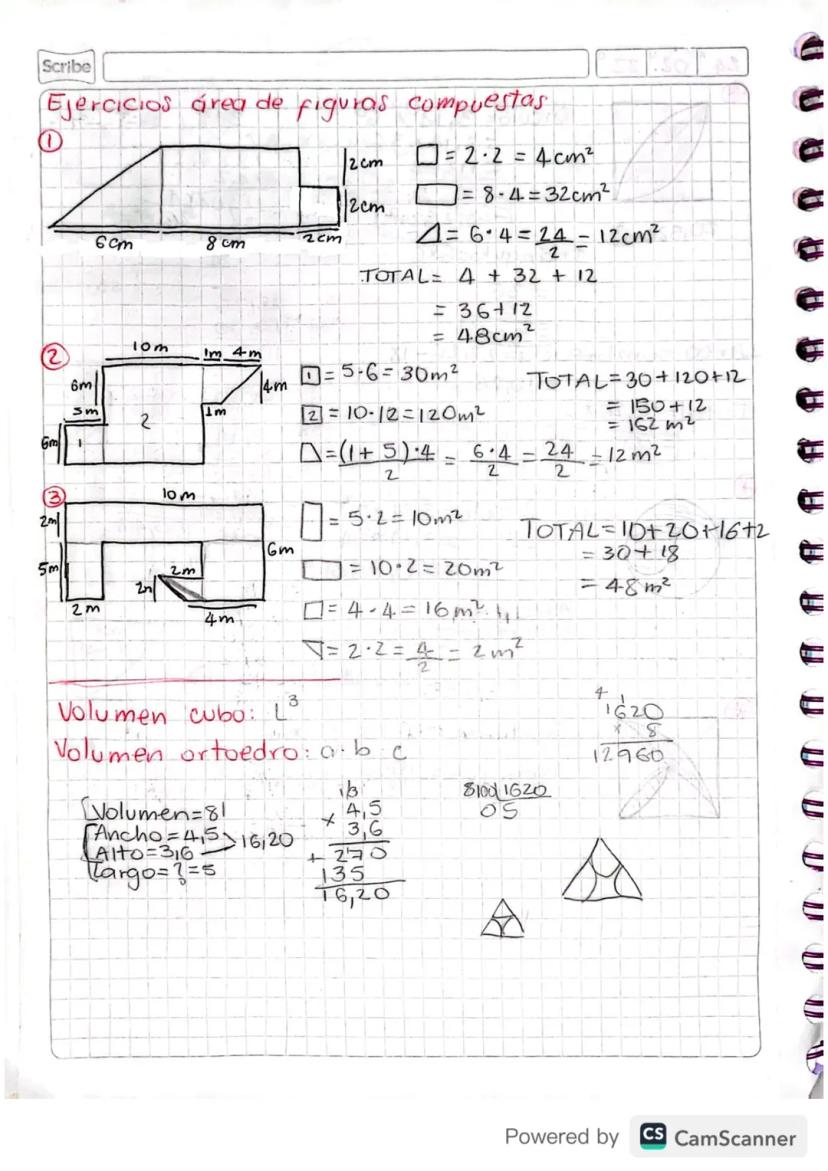 Scribe
Ejercicios área de figuras compuestas
①
2cm
2cm
6cm 8cm 2cm
□ = 2·2 = 4cm²
▭ = 8·4 = 32cm²
◿ = 6·4 = 24/2 = 12cm²
TOTAL = 4 + 32 + 12
= 36+12
= 48cm²
②
10m 1m 4m
6m
4m
5m
1m
2
6m
1
1 = 5·6 = 30m²
2 = 10·12 = 120m²
= (1 + 5)·4/2 = 6·4/2 = 24/2 = 12m²
TOTAL = 30+120+12
= 150+12
= 162 m²
③
10m
2m
6m
5m
2m
2m
4m
▯ = 5·2 = 10m²
▭ = 10·2 = 20m²
□ = 4·4 = 16m²
▽ = 2·2 = 4/2 = 2m²
TOTAL = 10+20+16+2
= 30+18
= 48m²
Volumen cubo: L³
Volumen ortoedro: a·b·c
4 1
1620
x 8
12960
Volumen=81
Ancho=4,5
Alto=3,6
16,20
Largo=?=5
4,5
x 3,6
+ 270
135
16,20
8100 1620
05
Powered by CS CamScanner